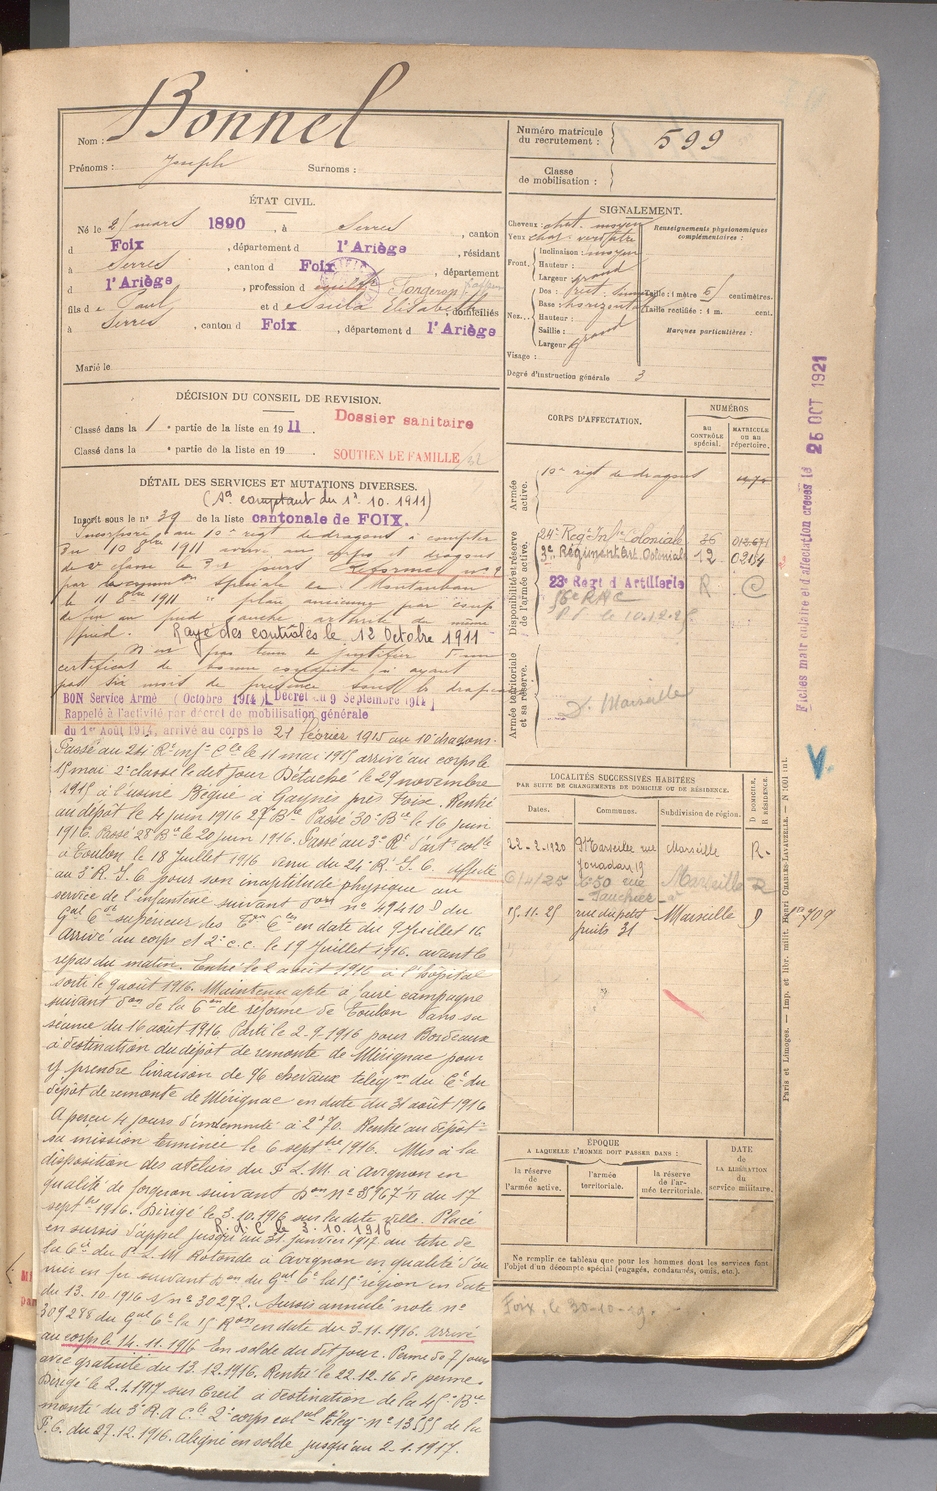 Nom : Bonnel
Prénoms : Joseph Surnoms :
Numéro matricule du recrutement : 599
Classe de mobilisation :
ÉTAT CIVIL.
Né le 2 mars 1890, à Serres, canton
d Foix, département d l'Ariège, résidant
à Serres, canton d Foix, département
d l'Ariège, profession d Forgeron
fils de Paul et de Elisabeth, domiciliés
à Serres, canton d Foix, département d l'Ariège
Marié le
SIGNALEMENT.
Cheveux : chat. moyen
Yeux
Renseignements physionomiques complémentaires :
Front. Inclinaison : moyen
Hauteur :
Largeur : grand
Nez. Dos :
Base : horizontal
Hauteur :
Saillie :
Largeur : grand
Taille : 1 mètre centimètres.
Taille rectifiée : 1 m. cent.
Marques particulières :
Visage :
Degré d'instruction générale 3
DÉCISION DU CONSEIL DE REVISION.
Classé dans la 1 e partie de la liste en 1911.
Dossier sanitaire
Classé dans la e partie de la liste en 19
SOUTIEN DE FAMILLE
DÉTAIL DES SERVICES ET MUTATIONS DIVERSES.
(Sce comptant du 1er. 10. 1911)
Inscrit sous le n° 39 de la liste cantonale de FOIX.
Incorporé au 10e régt de dragons à compter
du 10 8bre 1911 arrivé au corps et dragon
de 2e classe le dit jour. Réformé n° 2
par commission spéciale de Montauban
le 11 8bre 1911
au pied gauche arthrite du même
pied. Rayé des contrôles le 12 Octobre 1911
N'est pas tenu de justifier d'un
certificat de bonne conduite n'ayant
pas six mois de présence sous les drapeaux
BON Service Armé (Octobre 1914) Décret du 9 Septembre 1914
Rappelé à l'activité par décret de mobilisation générale
du 1er Août 1914, arrivé au corps le 21 février 1915 au 10e dragons.
Passé au 24e Rt infie Cle le 11 mai 1915 arrivé au corps le
15 mai 2e classe le dit jour Détaché le 29 novembre
1915 à l'usine Bégué à près Foix. Rentré
au dépôt le 4 juin 1916 27e Bie Passé 30e Bie le 16 juin
1916. Passé 28e Bie le 20 juin 1916. Passé au 3e Rt d'artie colle
à Toulon le 18 Juillet 1916 venu du 24e R.I.C. affecté
au 3e R.I.C pour son inaptitude physique au
service de l'infanterie suivant don n° 49410 D du
Gal Ct supérieur des Tes Cles en date du 9 Juillet 16
Arrivé au corps et 2e c.c. le 19 Juillet 1916. avant le
repas du matin. Entré le 2 août 1916 à l'hôpital
sorti le 9 août 1916. Maintenu apte à faire campagne
suivant don de la Con de réforme de Toulon dans sa
séance du 16 août 1916. Parti le 2.9.1916 pour Bordeaux
à destination du dépôt de remonte de Mérignac pour
y prendre livraison de 96 chevaux telegme du Ct du
dépôt de remonte de Mérignac en date du 31 août 1916
A perçu 4 jours d'indemnité à 2f70. Rentré au dépôt
sa mission terminée le 6 septbre 1916. Mis à la
disposition des ateliers du P.L.M. à Avignon en
qualité de forgeron suivant Don n° du 17
septbre 1916. Dirigé le 3.10.1916 sur la dite ville. Placé
R. d. C le 3. 10. 1916
en sursis d'appel jusqu'au 31 janvier 1917 au titre de
la Cie du P.L.M. Rotonde à Avignon en qualité d'ou
vrier en fer suivant don du Gal Ct la 15e région en date
du 13.10.1916 s/n° 30292. Sursis annulé note n°
309288 du Gal Ct la 15 Ron en date du 3-11-1916. arrivé
au corps le 14.11.1916 En solde du dit jour. Permon de 7 jours
avec gratuité du 13.12.1916. Rentré le 22.12.16 de permon
Dirigé le 2.1.1917 sur Creil à destination de la 45e Bie
montée du 3e R.A.Cle 2e corps colal téleg n° 13555 de la
P.G. du 27.12.1916. aligné en solde jusqu'au 2-1.1917.
CORPS D'AFFECTATION.
NUMÉROS
AU CONTRÔLE SPÉCIAL.
MATRICULE OU AU RÉPERTOIRE.
Armée active.
10e régt de dragons
Disponibilité et réserve de l'armée active.
24e Régt Infie Coloniale 36 012.671
3e Régiment Art. Coloniale 12 0254
23e Regt d'Artillerie R C
56e RAC
Armée territoriale et sa réserve.
D. Marseille
LOCALITÉS SUCCESSIVES HABITÉES
PAR SUITE DE CHANGEMENTS DE DOMICILE OU DE RÉSIDENCE.
Dates. Communes. Subdivision de région. D DOMICILE, R RÉSIDENCE.
22-2-1920 Marseille rue 19 Marseille R.
6/4/25 rue Marseille R
15.11.25 rue du petit puits 31 Marseille D
ÉPOQUE
A LAQUELLE L'HOMME DOIT PASSER DANS :
la réserve de l'armée active.
l'armée territoriale.
la réserve de l'armée territoriale.
DATE DE LA LIBÉRATION du service militaire.
Ne remplir ce tableau que pour les hommes dont les services font
l'objet d'un décompte spécial (engagés, condamnés, omis, etc.).
Foix, le 30-10-19.
Fiches matriculaire et d'affectation créées le 25 OCT 1921
V
Paris et Limoges. — Imp. et libr. milit. Henri CHARLES-LAVAUZELLE. — N° 1001 int.